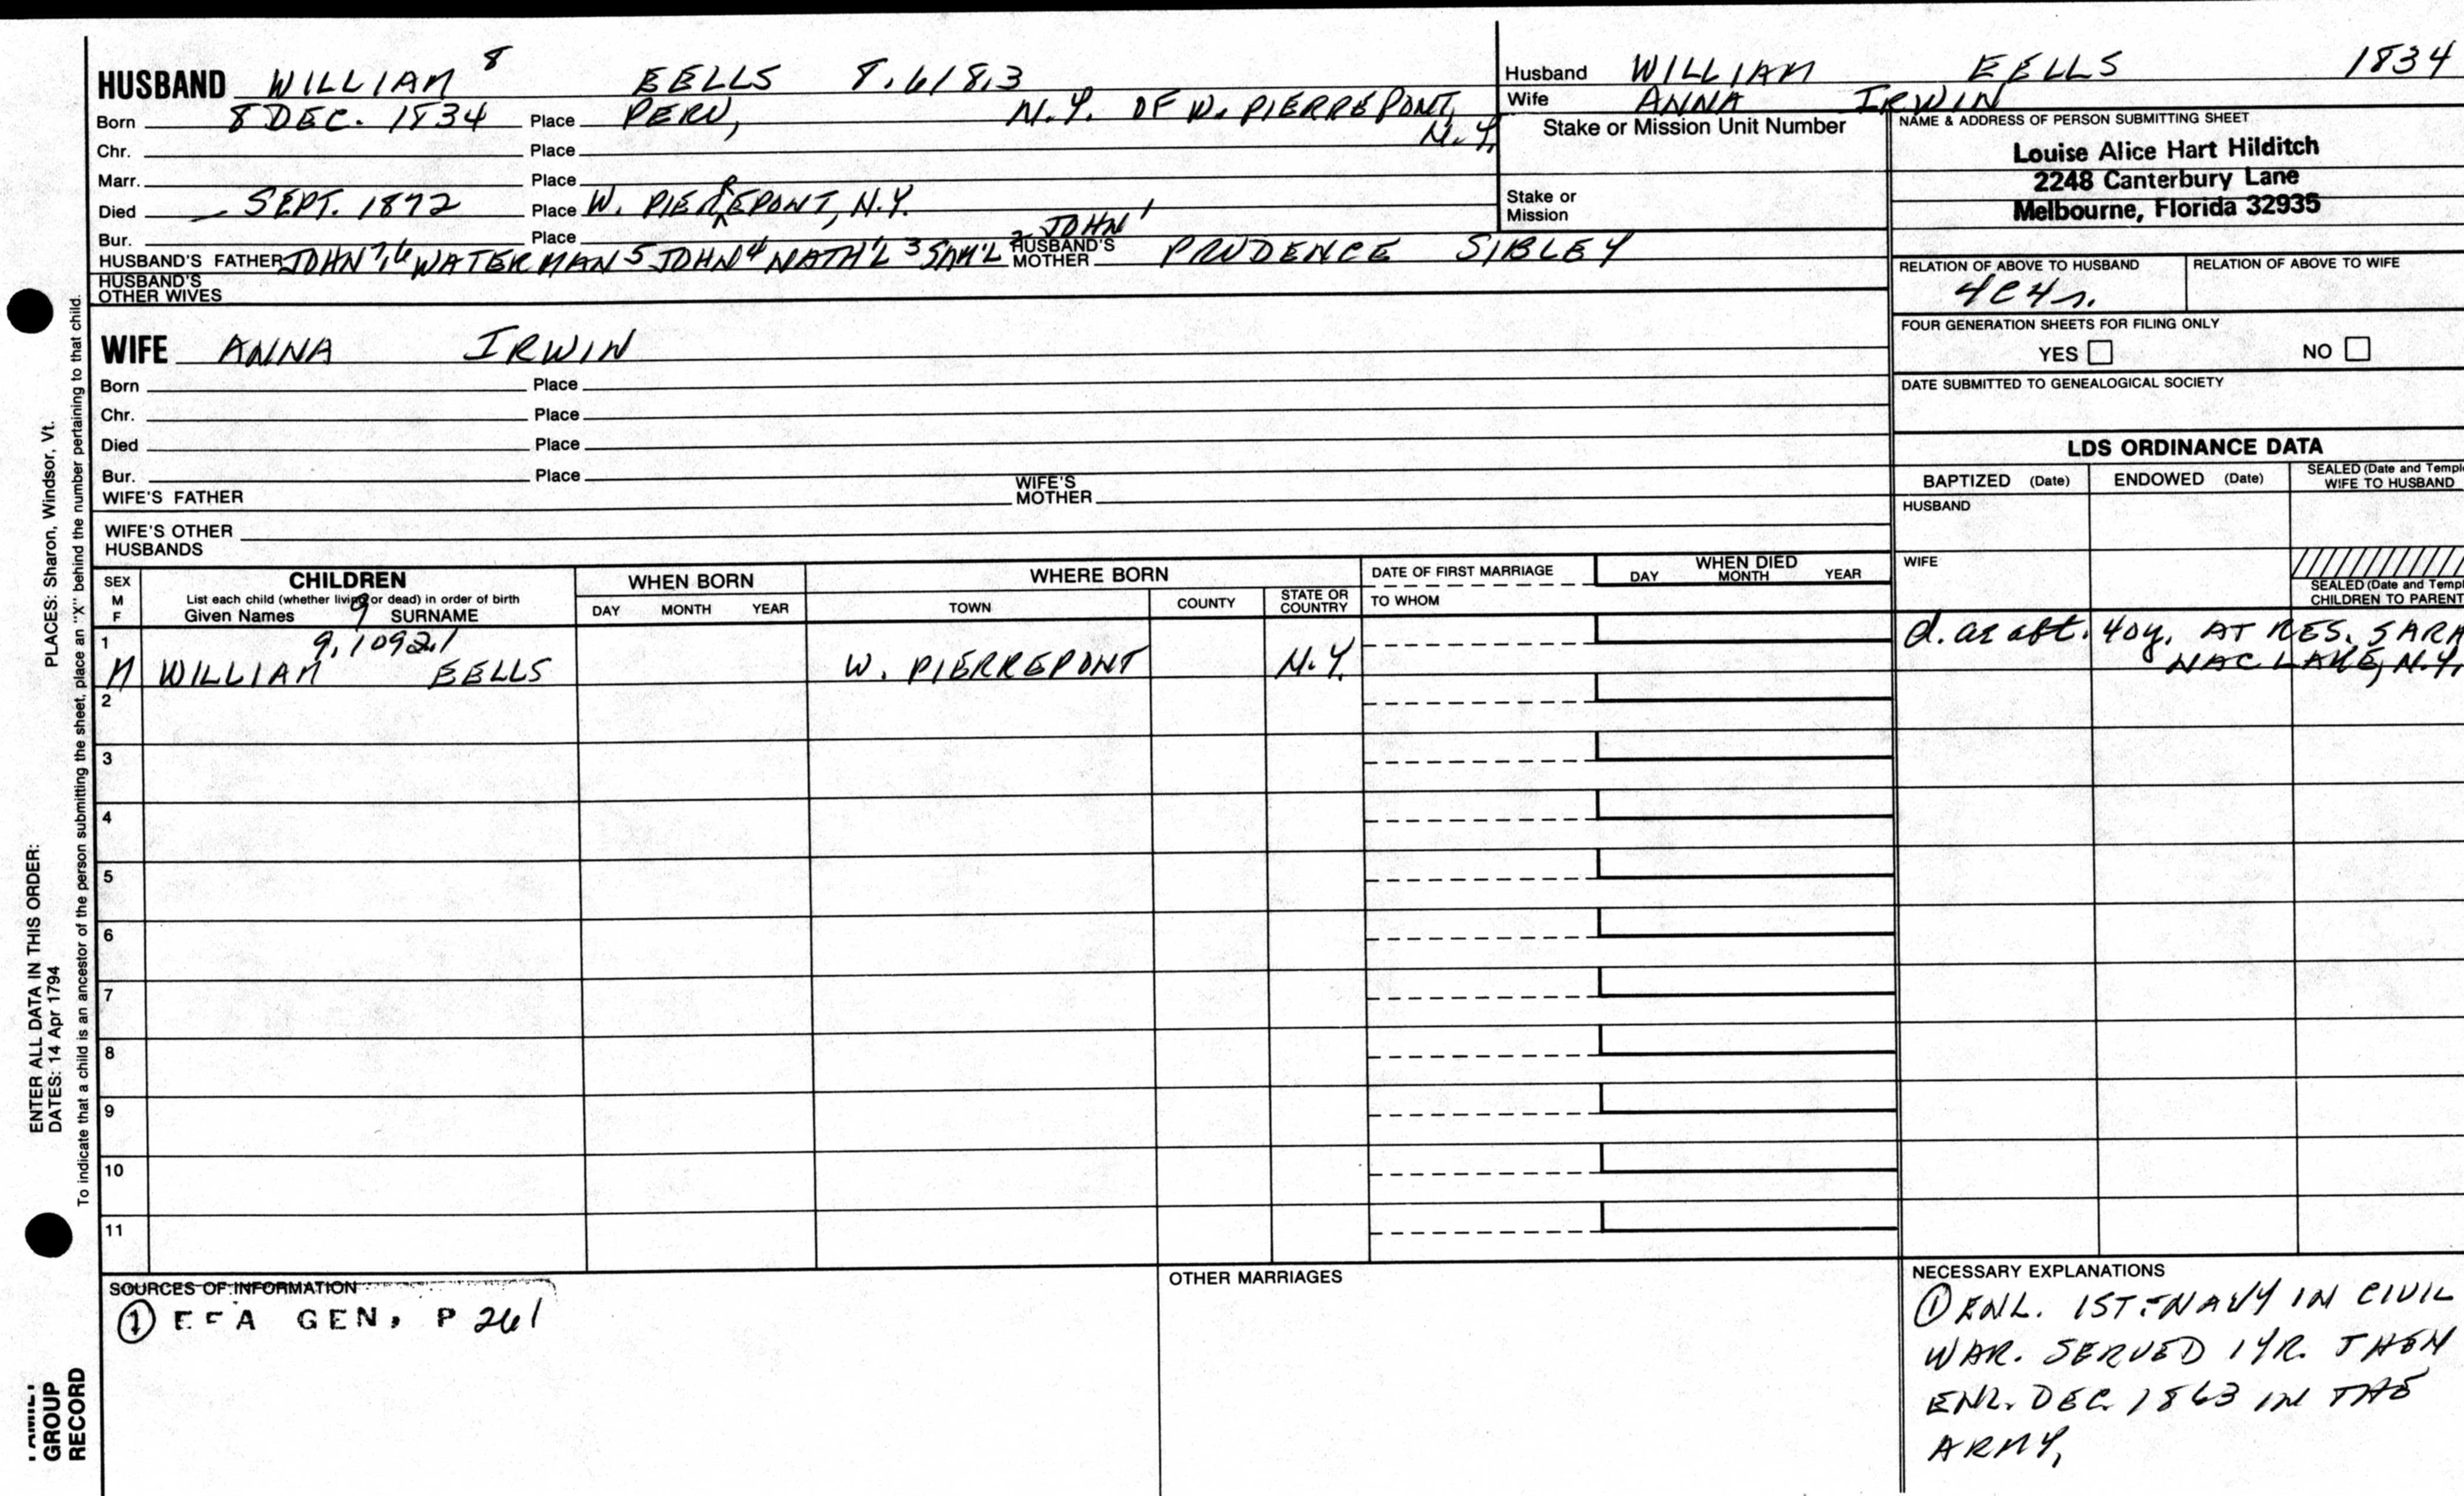 HUSBAND WILLIAM 8 EELLS 8.6183
Born 8 DEC. 1834 Place PERU, N.Y. OF W. PIERREPONT, N.Y.
Chr. Place
Marr. Place
Died SEPT. 1872 Place W. PIERREPONT, N.Y.
Bur. Place
HUSBAND'S FATHER JOHN 7,6 WATERMAN 5 JOHN 4 NATH'L 3 SAM'L 2 JOHN 1 HUSBAND'S MOTHER PRUDENCE SIBLEY
HUSBAND'S OTHER WIVES
WIFE ANNA IRWIN
Born Place
Chr. Place
Died Place
Bur. Place
WIFE'S FATHER WIFE'S MOTHER
WIFE'S OTHER HUSBANDS
Husband WILLIAM EELLS 1834
Wife ANNA IRWIN
Stake or Mission Unit Number
Stake or Mission
NAME & ADDRESS OF PERSON SUBMITTING SHEET
Louise Alice Hart Hilditch
2248 Canterbury Lane
Melbourne, Florida 32935
RELATION OF ABOVE TO HUSBAND RELATION OF ABOVE TO WIFE
4C4r.
FOUR GENERATION SHEETS FOR FILING ONLY
YES NO
DATE SUBMITTED TO GENEALOGICAL SOCIETY
LDS ORDINANCE DATA
BAPTIZED (Date) ENDOWED (Date) SEALED (Date and Temple WIFE TO HUSBAND
HUSBAND
WIFE
SEALED (Date and Templ
CHILDREN TO PARENT
SEX M F CHILDREN WHEN BORN WHERE BORN DATE OF FIRST MARRIAGE WHEN DIED
List each child (whether living or dead) in order of birth
Given Names 9 SURNAME DAY MONTH YEAR TOWN COUNTY STATE OR COUNTRY TO WHOM DAY MONTH YEAR
1 9.1092.1
M WILLIAM EELLS W. PIERREPONT N.Y. d. as abt. 40y. AT RES. SARA
NAC LAKE, N.Y.
2
3
4
5
6
7
8
9
10
11
SOURCES OF INFORMATION
① EFA GEN, P 261
OTHER MARRIAGES
NECESSARY EXPLANATIONS
① ENL. 1ST-NAVY IN CIVIL
WAR. SERVED 1YR. THEN
ENL. DEC 1863 IN THE
ARMY,
PLACES: Sharon, Windsor, Vt.
ENTER ALL DATA IN THIS ORDER:
DATES: 14 Apr 1794
To indicate that a child is an ancestor of the person submitting the sheet, place an "X" behind the number pertaining to that child.
FAMILY
GROUP
RECORD